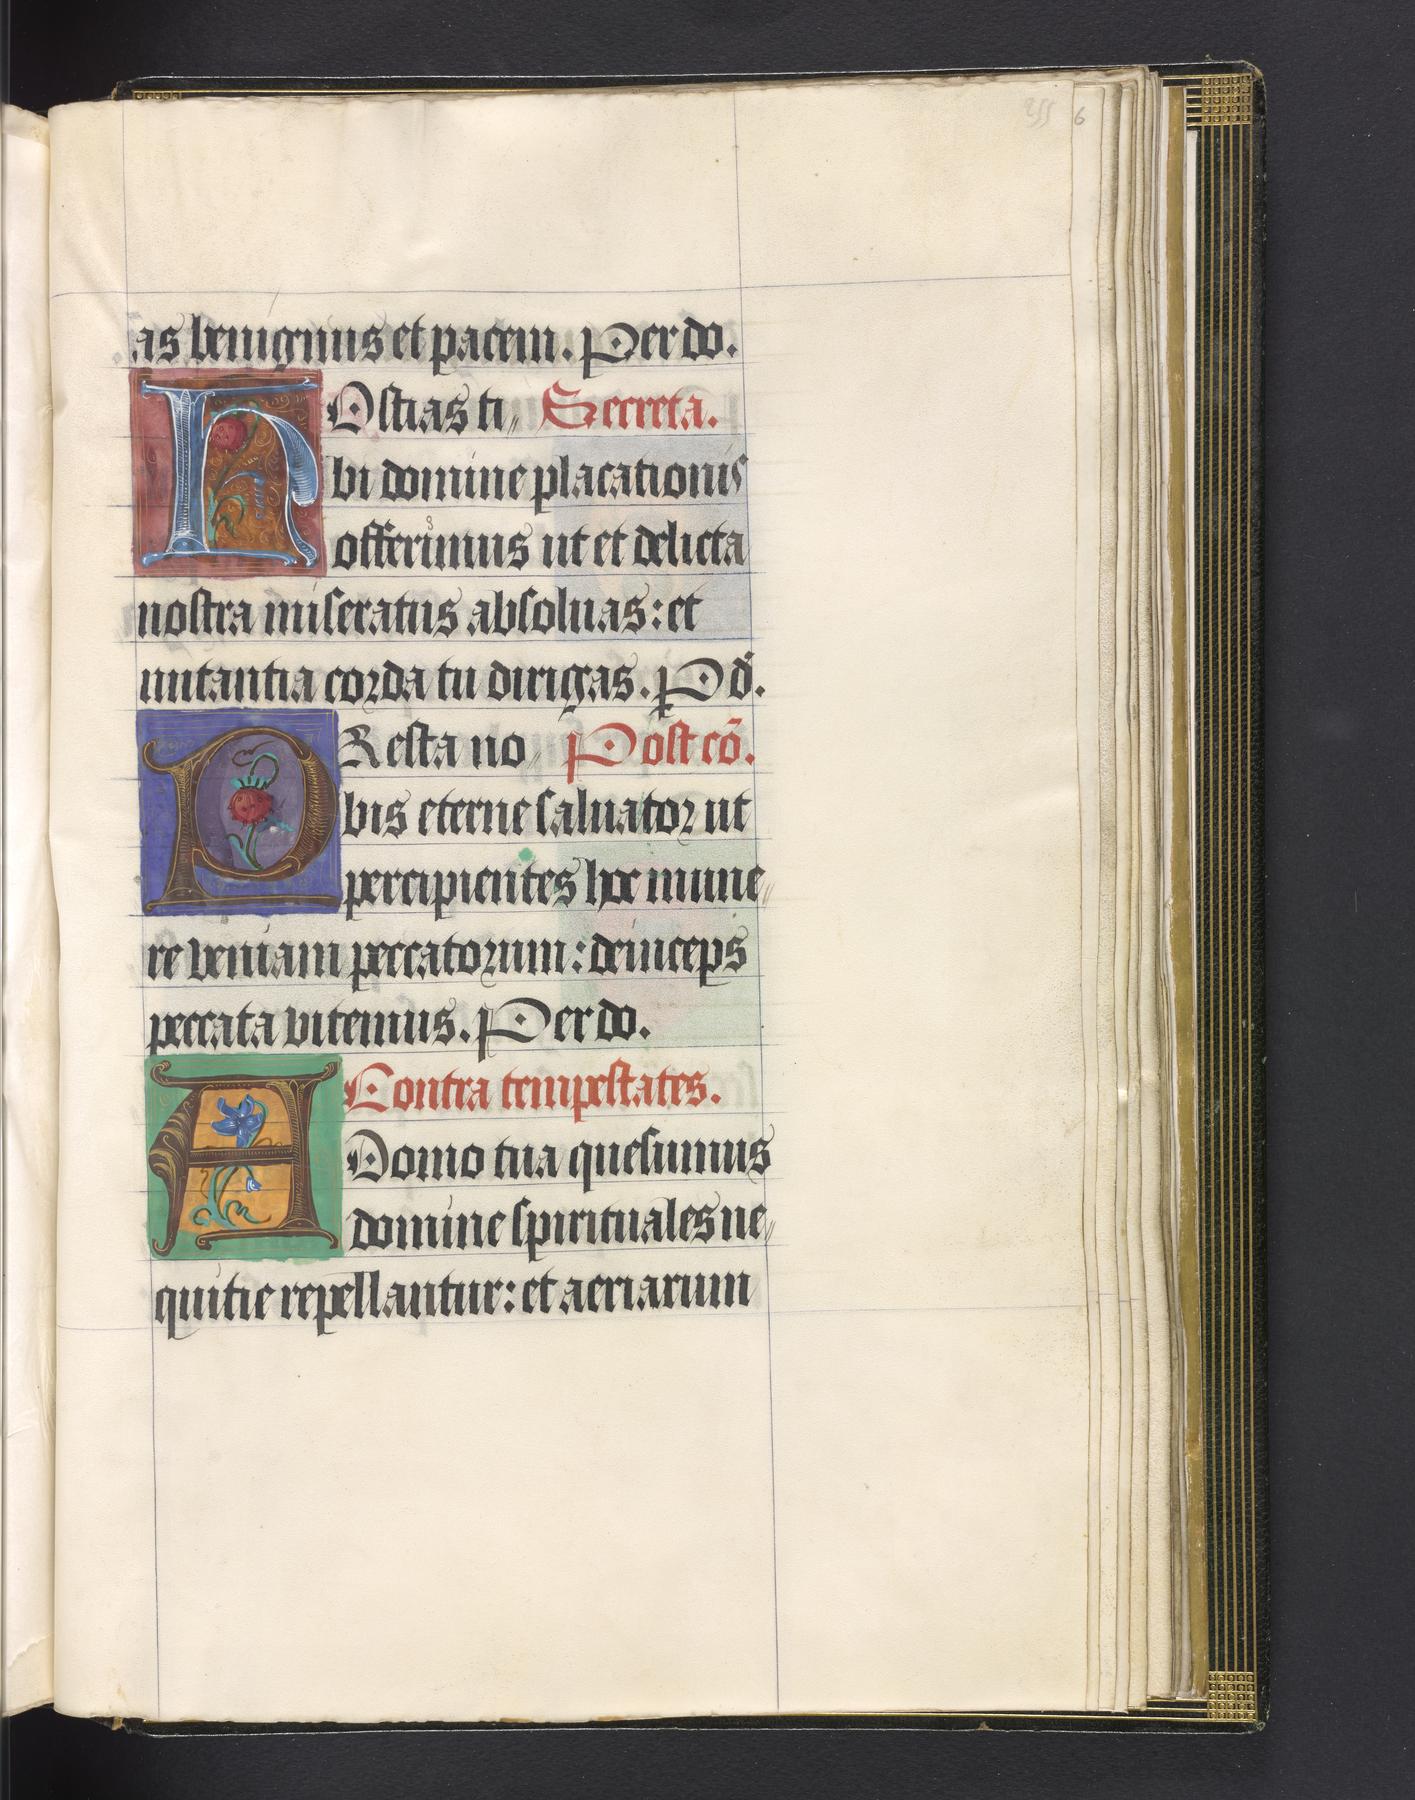 255 6
as benignus et pacem. Per do.
HOstias ti〃 Secreta.
bi domine placationis
offerimus ut et delicta
nostra miseratus absoluas: et
nutantia corda tu dirigas. P d.
PResta no〃 Post cō.
bis eterne saluator ut
percipientes hoc mune〃
re veniam peccatorum: deinceps
peccata vitemus. Per do.
Contra tempestates.
A Domo tua quesumus
domine spirituales ne〃
quitie repellantur: et aeriarum